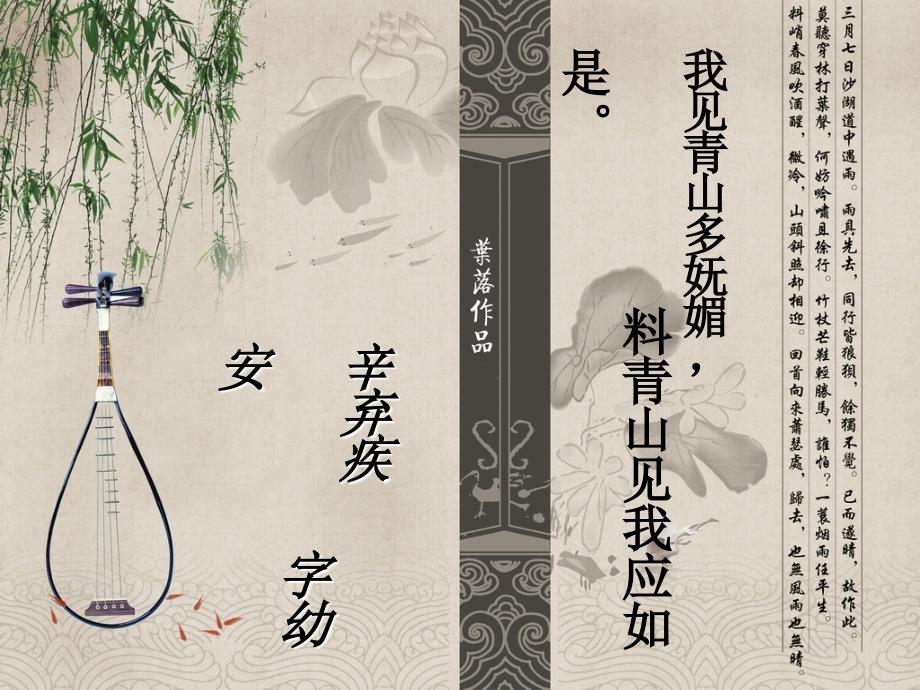 三月七日沙湖道中遇雨。雨具先去，同行皆狼狽，餘獨不覺。已而遂晴，故作此。
莫聽穿林打葉聲，何妨吟嘯且徐行。竹杖芒鞋輕勝馬，誰怕？一蓑烟雨任平生。
料峭春風吹酒醒，微冷，山頭斜照却相迎。回首向來蕭瑟處，歸去，也無風雨也無晴。
我见青山多妩媚，
料青山见我应如
是。
葉落作品
辛弃疾
字幼
安